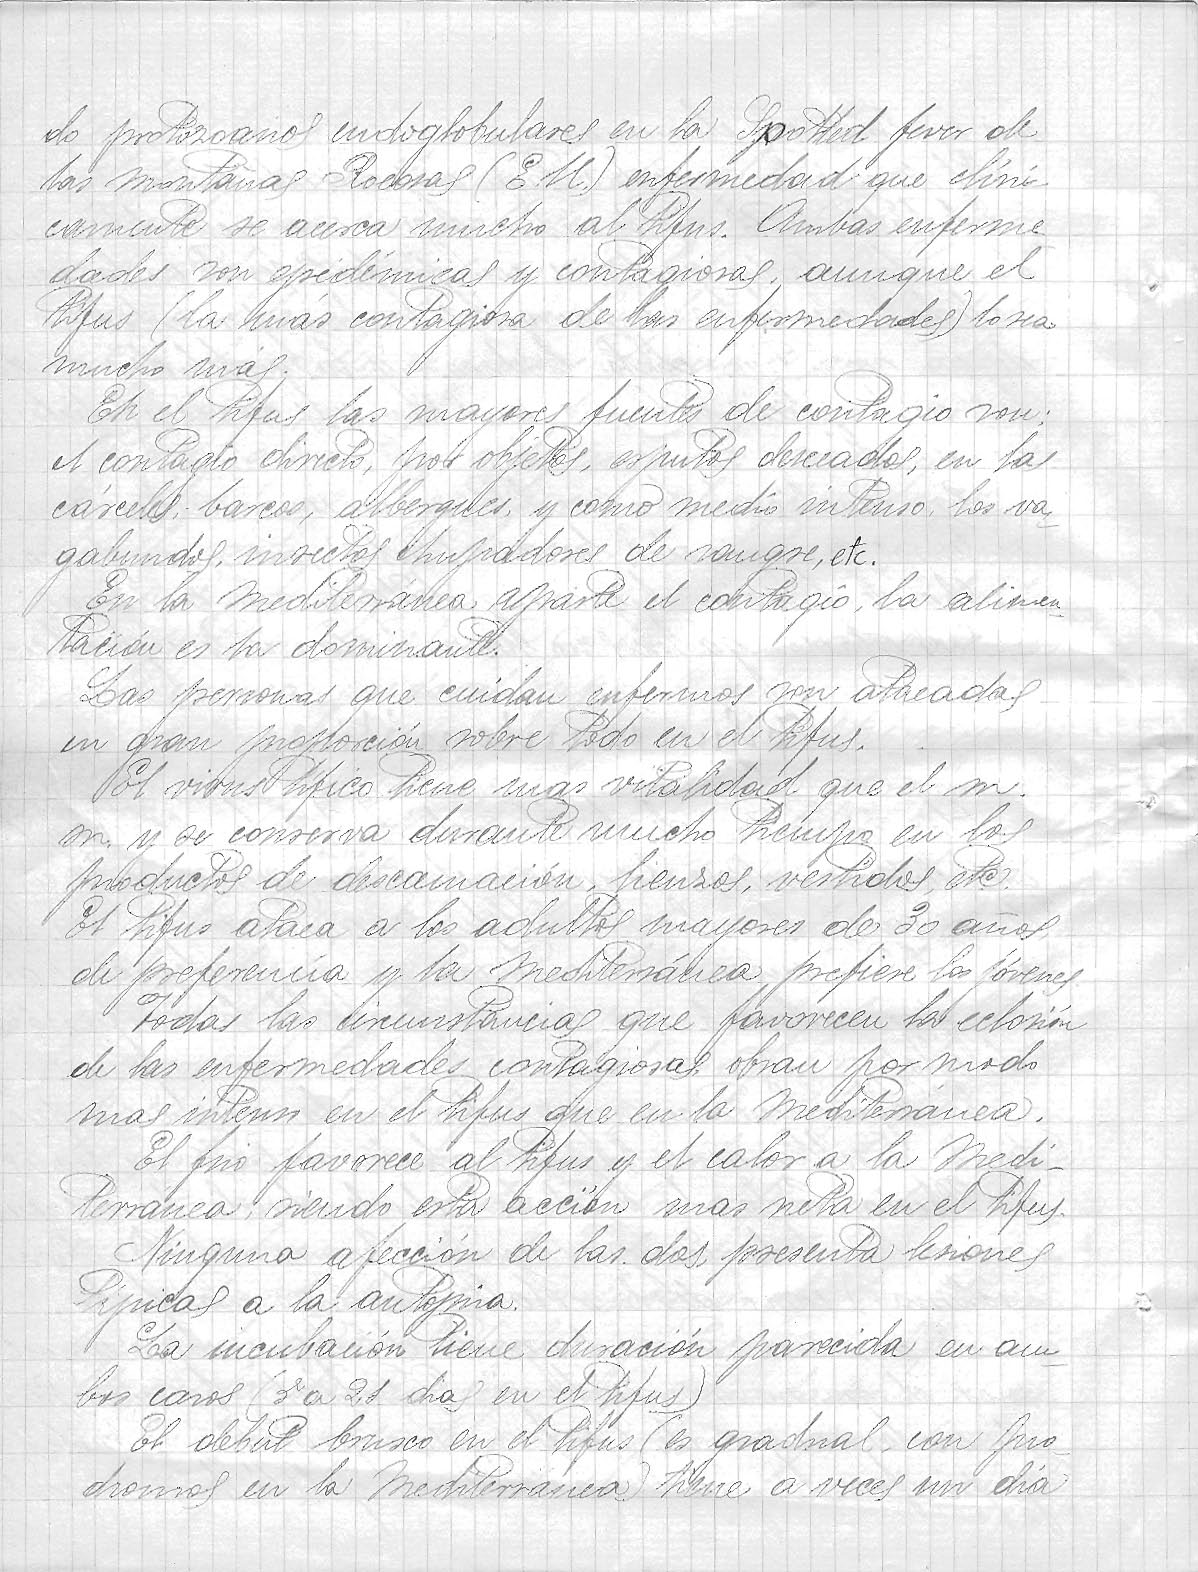 do protozoarios endoglobulares en la Spotted fever de
las montañas Rocosas (E.U.) enfermedad que clíni-
camente se acerca mucho al tifus. Ambas enferme
dades son epidémicas y contagiosas, aunque el
tifus (la más contagiosa de las enfermedades) lo sea
mucho más.
En el tifus las mayores fuentes de contagio son:
el contagio directo, por objetos, esputos desecados, en las
cárceles, barcos, albergues, y como medio intenso, los va-
gabundos, insectos chupadores de sangre, etc.
En la Mediterránea aparte el contagio, la alimen-
tación es la dominante.
Las personas que cuidan enfermos son atacadas
en gran proporción sobre todo en el tifus.
El virus tífico tiene mas vitalidad que el m.
m. y se conserva durante mucho tiempo en los
productos de descamación, lienzos, vestidos, etc.
El tifus ataca a los adultos mayores de 30 años,
de preferencia y la Mediterránea prefiere los jóvenes.
Todas las circunstancias que favorecen la eclosión
de las enfermedades contagiosas, obran por modo
mas intenso en el tifus que en la Mediterránea.
El frio favorece al tifus y el calor a la Medi-
terránea, siendo esta acción mas neta en el tifus.
Ninguna afección de las dos, presenta lesiones
típicas a la autopsia.
La incubación tiene duración parecida en am-
bos casos (5 a 21 dias en el tifus)
El debut brusco en el tifus (es gradual, con pro-
dromos en la Mediterránea) tiene a veces un día